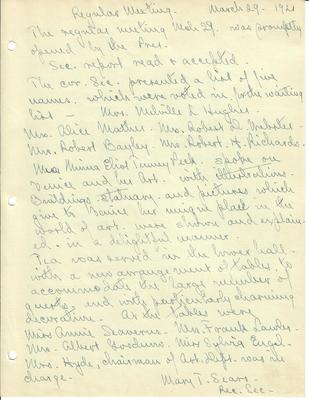 Regular Meeting. March 29 - 1921
The regular meeting Mch 29. was promptly
opened by the Pres.
Sec. report read & accepted.
The cor. Sec. presented a list of five
names, which were voted in for the waiting
list — Mrs. Melville L. Hughes.
Mrs. Alice Mather. Mrs. Robert L. Webster.
Mrs. Robert Bayley. Mrs. Robert H. Richards.
Miss Minna Eliot Tenney Peck. spoke on
Venice and her Art. with illustrations.
Buildings, statuary and pictures which
give to Venice her unique place in the
world of art. were shown and explain-
ed. in a delightful manner.
Tea was served in the lower hall.
with a new arrangement of tables, to
accommodate the large number of
guests. and with particularly charming
decoration. At the tables were
Miss Annie Deaverns. Mrs. Frank
Mrs. Albert Goodwin. Miss Sylvia
Mrs. Hyde, chairman of Art. Dept. was in
charge.
Mary T. Sears.
Rec. Sec.